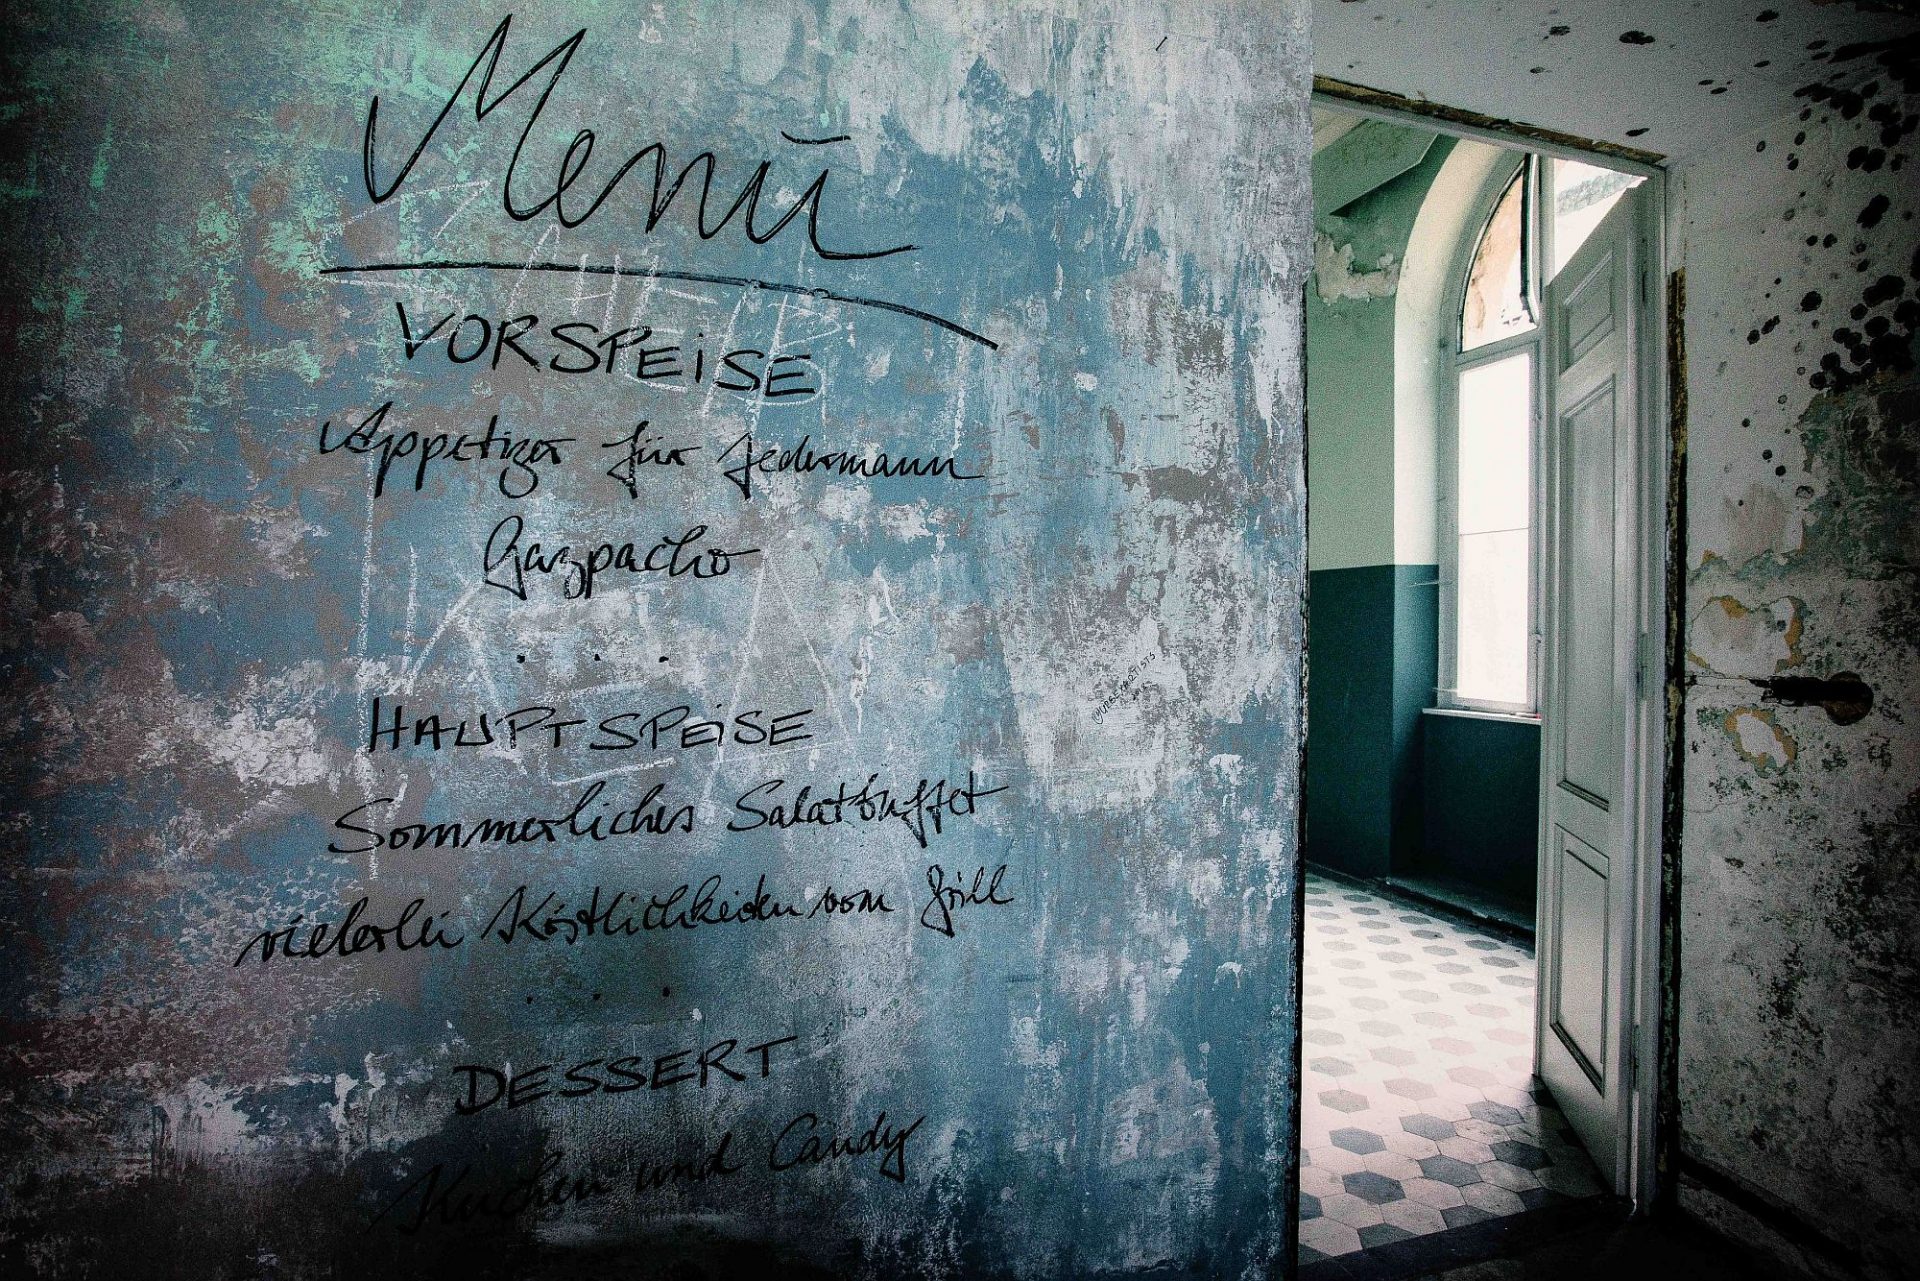 Menü
VORSPEiSE
Appetizer für Jedermann
Gazpacho
. . .
HAUPTSPEiSE
Sommerliches Salatbuffet
vielerlei Köstlichkeiten vom Grill
. . .
DESSERT
Kuchen und Candy